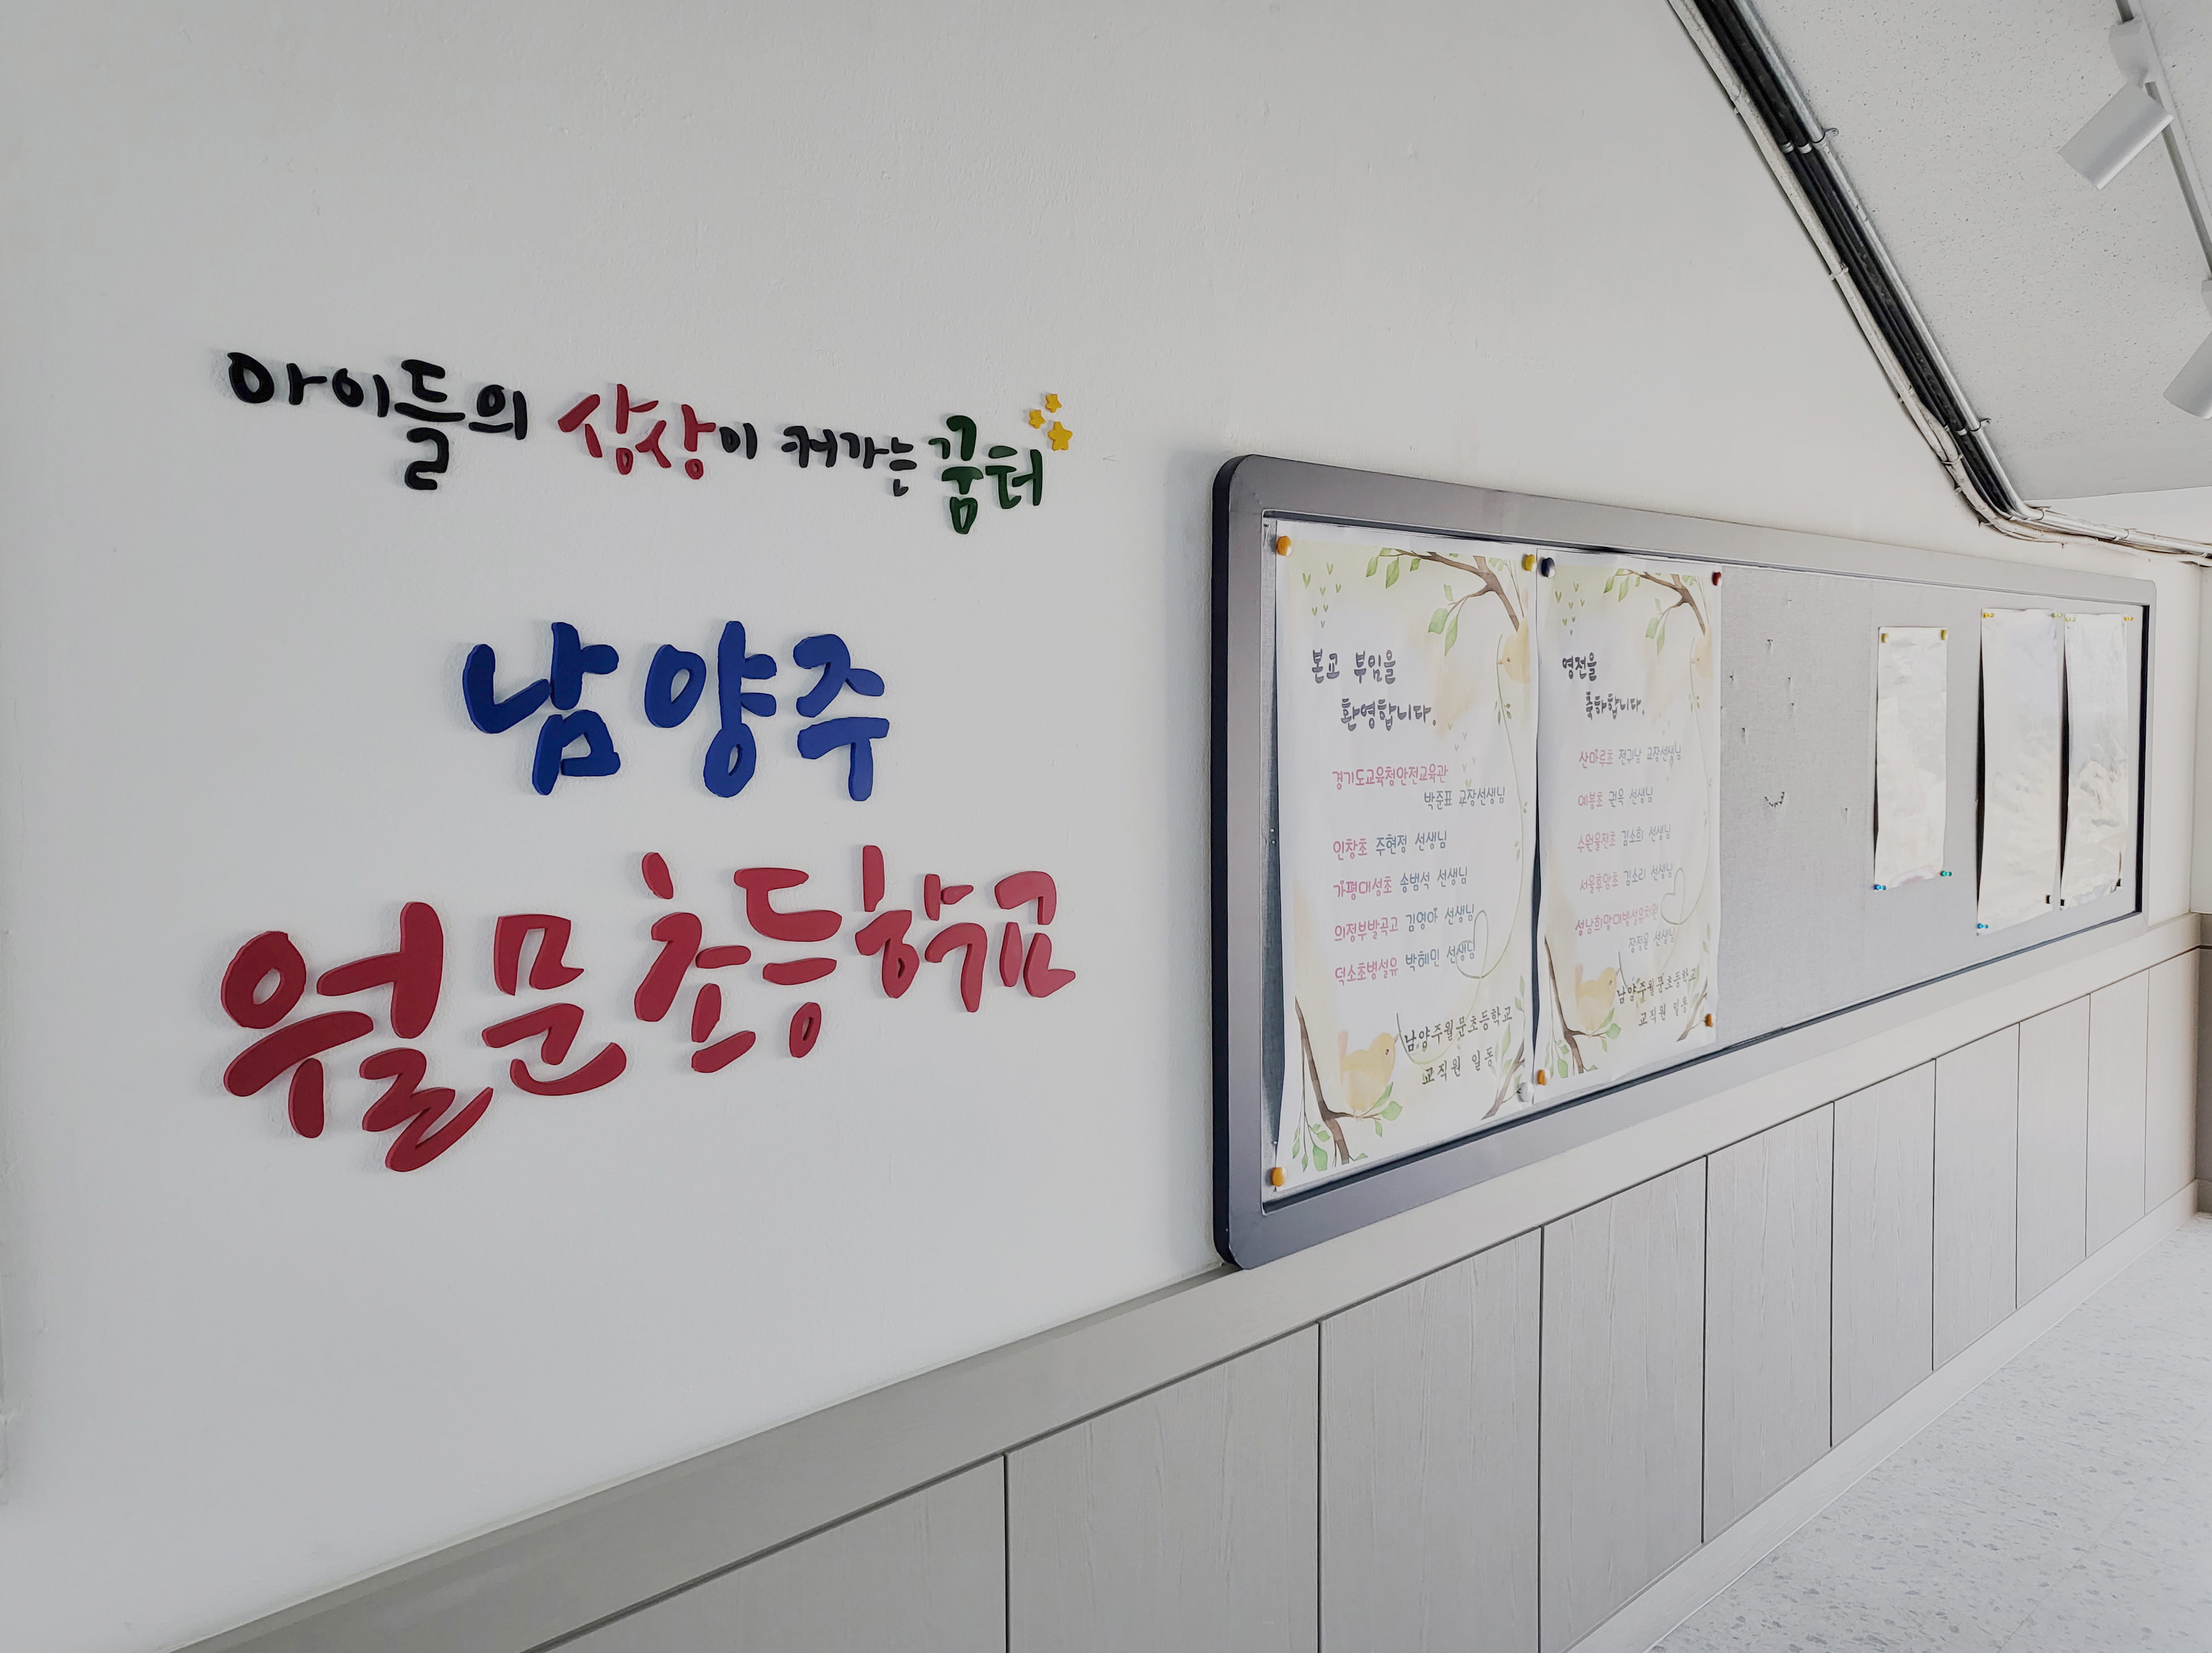 아이들의 상상이 커가는 꿈터
남양주
월문초등학교
본교 부임을
환영합니다.
경기도교육청안전교육관
박준표 교장선생님
인창초 주현정 선생님
가평대성초 송범석 선생님
의정부발곡고 김영아 선생님
덕소초병설유 박혜민 선생님
남양주월문초등학교
교직원 일동
영전을
축하합니다.
산마루초 전귀남 교장선생님
예봉초 권옥 선생님
수원율전초 김소희 선생님
서울휴암초 김소리 선생님
성남희망대병설유치원
장정윤 선생님
남양주월문초등학교
교직원 일동